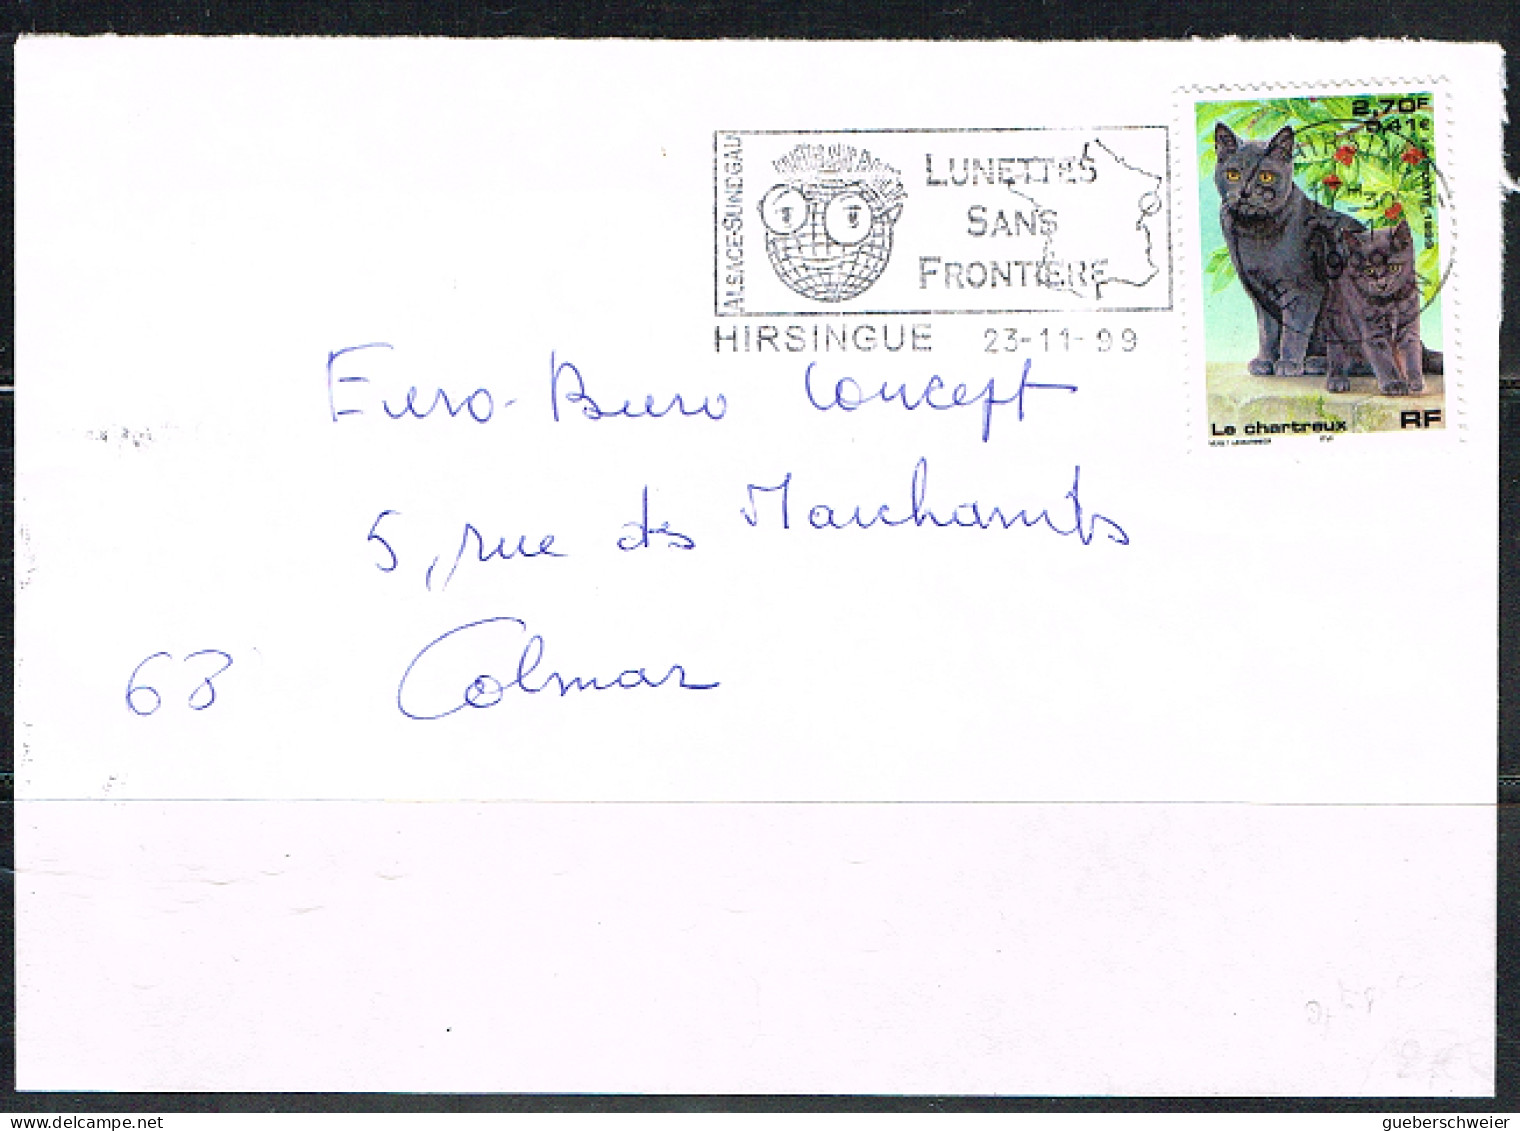 ALSACE-SUNDGAU
LUNETTES
SANS
FRONTIERE
HIRSINGUE 23-11-99
2,70F
0,41€
1999
Le chartreux
RF
Euro-Buro Concept
5, rue des Marchands
68 Colmar
gueberschweier
delcampe.net